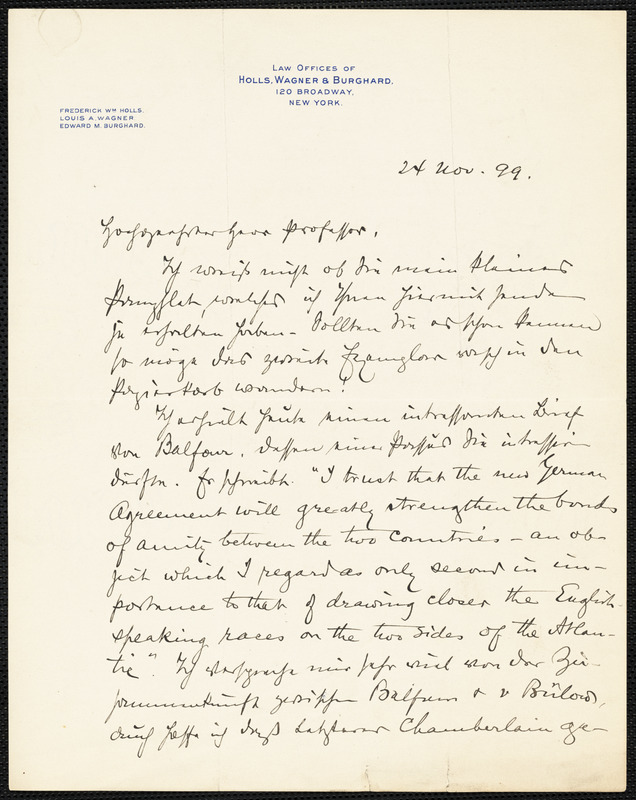 LAW OFFICES OF
HOLLS, WAGNER & BURGHARD.
120 BROADWAY,
NEW YORK.
FREDERICK WM HOLLS.
LOUIS A. WAGNER
EDWARD M. BURGHARD.
24 Nov. 99.
Hochgeehrter Herr Professor,
Ich weiß nicht ob Sie mein kleines
Pamphlet, welches ich Ihnen hiermit sende
je erhalten haben – Sollten Sie es schon kennen
so möge das zweite Exemplar rasch in den
Papierkorb wandern!
Ich erhielt heute einen intressanten Brief
von Balfour, dessen eine Passus Sie intressiren
dürfte. Er schreibt: "I trust that the new German
Agreement will greatly strengthen the bonds
of amity between the two countries – an ob-
ject which I regard as only second in im-
portance to that of drawing closer the English-
speaking races on the two sides of the Atlan-
tic". Ich verspreche mir sehr viel von der Zu-
sammenkunft zwischen Balfour & v Bülow,
auch hoffe ich daß Letzterer Chamberlain ge-